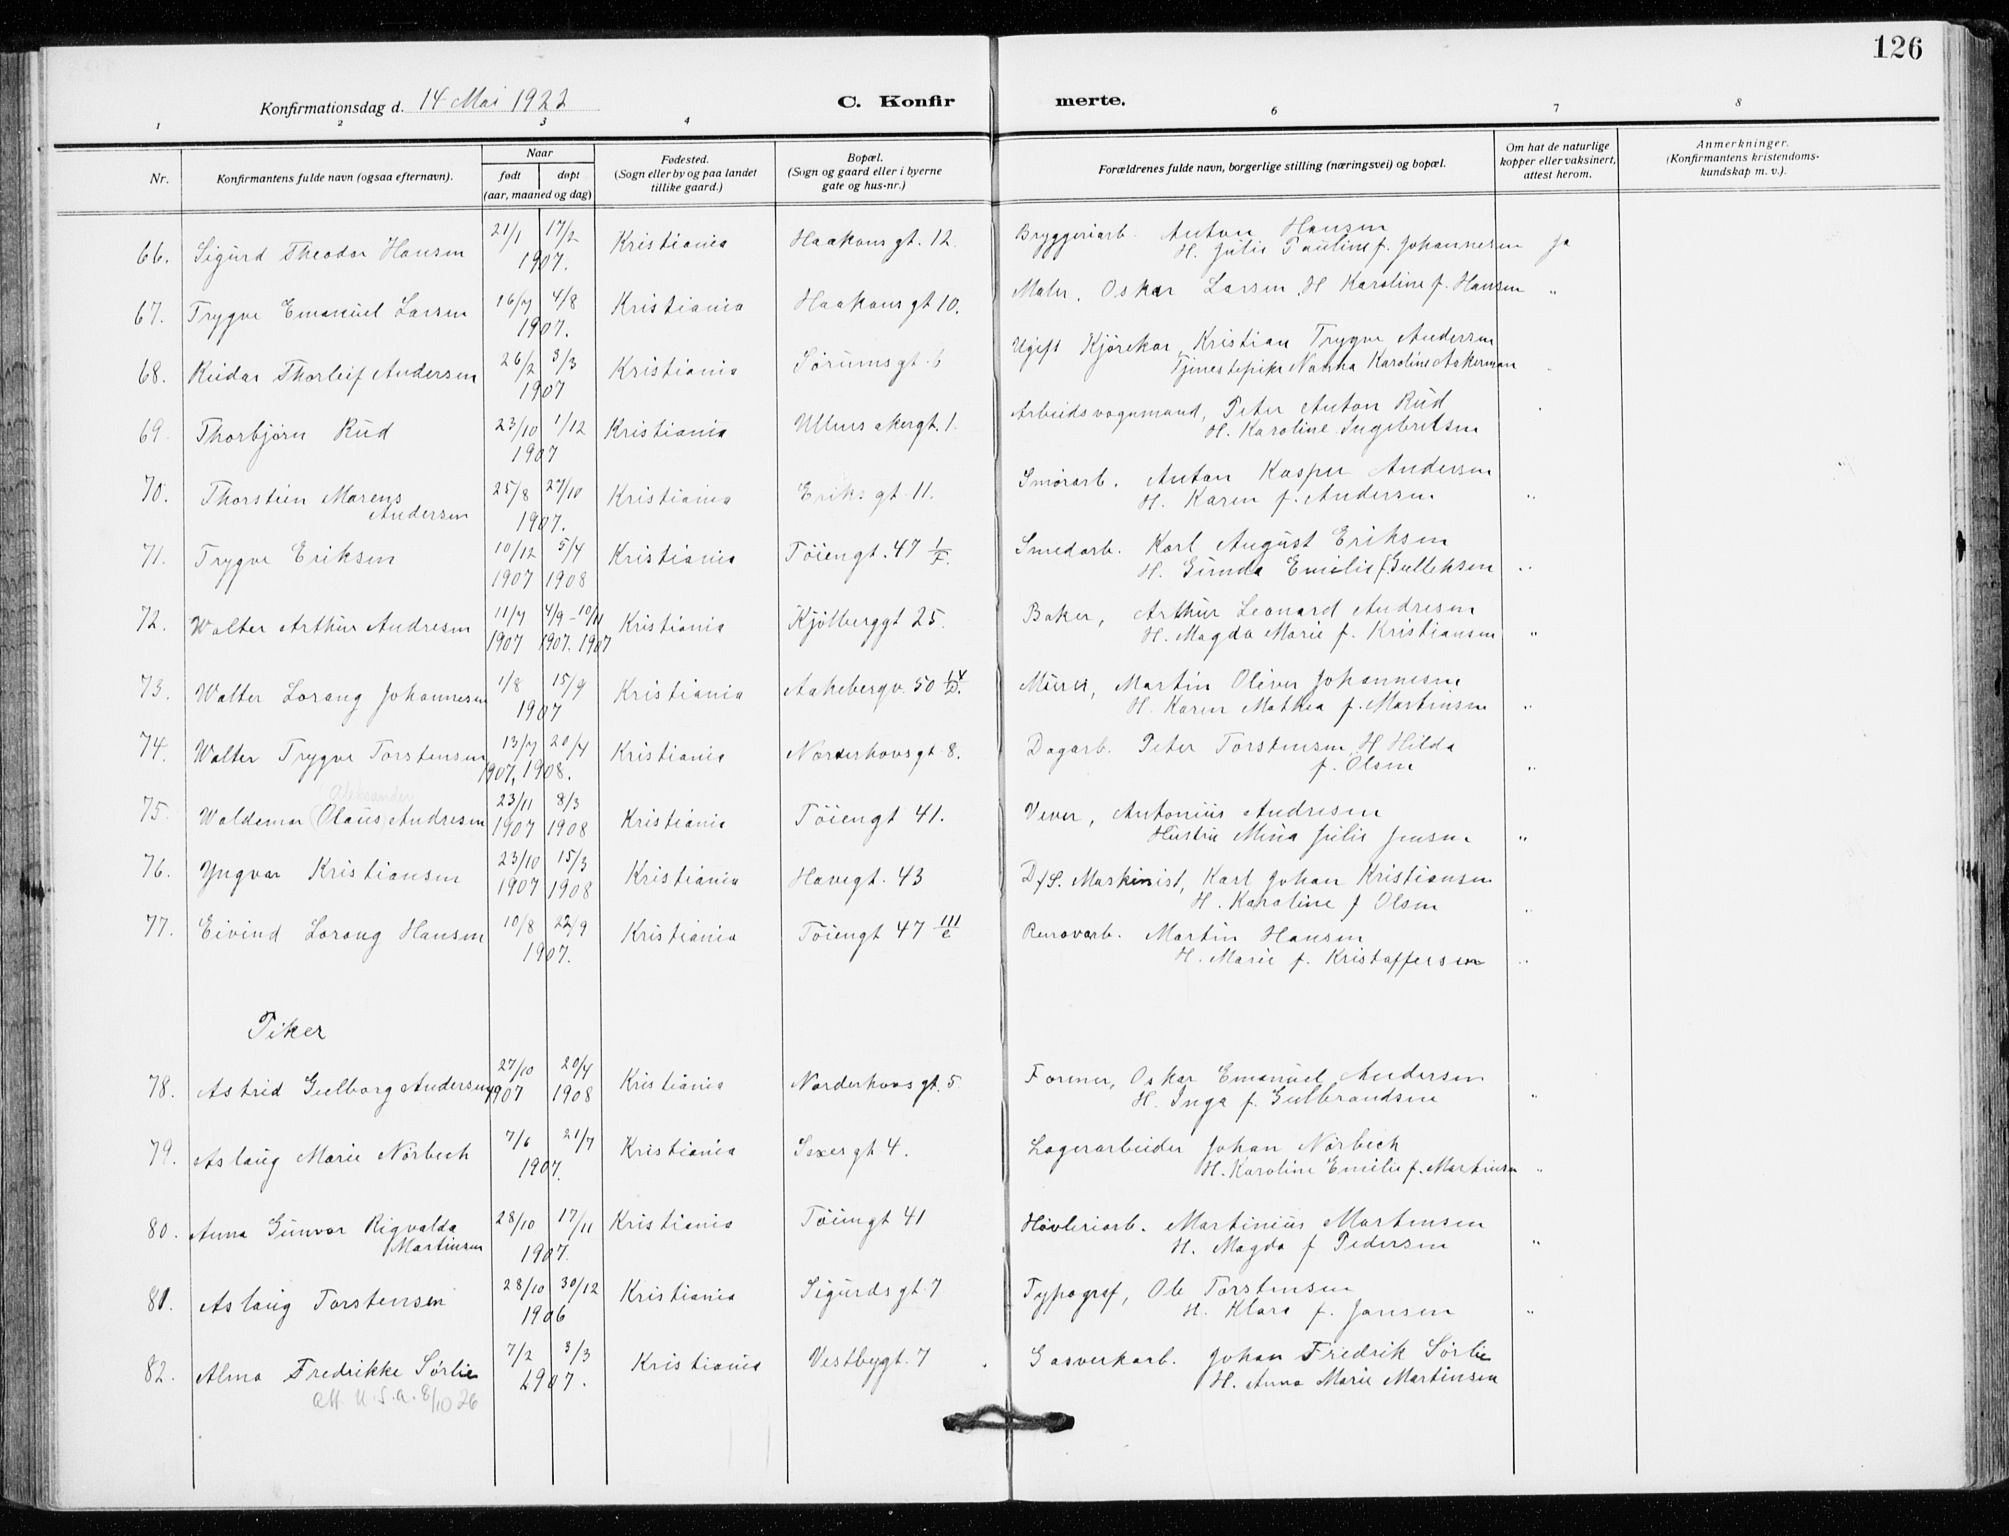 126
Konfirmationsdag d. 14 Mai 1922
C. Konfir
merte.
1 2 3 4 6 7 8
Nr.
Konfirmantens fulde navn (ogsaa efternavn).
Naar
født døpt
(aar, maaned og dag)
Fødested.
(Sogn eller by og paa landet
tillike gaard.)
Bopæl.
(Sogn og gaard eller i byerne
gate og hus-nr.)
Forældrenes fulde navn, borgerlige stilling (næringsvei) og bopæl.
Om hat de naturlige
kopper eller vaksinert,
attest herom.
Anmerkninger.
(Konfirmantens kristendoms-
kundskap m. v.).
66. Sigurd Theodor Hansen 21/1 17/2 1907. Kristiania Haakons gt. 12. Bryggeriarb. Anton Hansen
H. Julie Pauline f. Johannesen ja
67. Trygve Emanuel Larsen 16/7 4/8 1907. Kristiania Haakons gt. 10. Maler. Oskar Larsen. H Karoline f. Hansen "
68. Reidar Thorleif Andersen 26/2 3/3 1907 Kristiania Sørums gt. 6 Ugift Kjørekar, Kristian Trygve Andersen
Tjenestepike Nanna Karoline Askerman
69. Thorbjørn Rud 23/10 1/12 1907 Kristiania Ullensakergt. 1. Arbeidsvognmand, Peter Anton Rud
H. Karoline Ingebretsen
70. Thorstein Marens
Andersen 25/8 27/10 1907. Kristiania Eriks gt. 11. Smørarb. Anton Kasper Andersen
H. Karen f. Andersen "
71. Trygve Eriksen 10/12 1907 5/4 1908 Kristiania Tøiengt. 47 1/F. Smedarb. Karl August Eriksen
H. Gunda Emilie f. Gulleksen "
72. Walter Arthur Andresen 11/7 1907 4/9 - 10/11 1907. 1907 Kristiania Kjølberggt 25. Baker, Arthur Leonard Andresen
H. Magda Marie f. Kristiansen "
73. Walter Lorang Johannesen 1/8 15/9 1907 Kristiania Aakebergv. 50 Murer, Martin Oliver Johannesen
H. Karen Mathea f. Martinsen "
74. Walter Trygve Torstensen 13/7 1907, 20/4 1908. Kristiania Norderhovsgt. 8. Dagarb. Peter Torstensen, H Hilda
f. Olsen "
Aleksander
75. Waldemar (Olaus) Andresen 23/11 1907 8/3 1908 Kristiania Tøiengt 41. Vever, Antonius Andresen
Hustru Mina Julie Jensen "
76. Yngvar Kristiansen 23/10 1907 15/3 1908 Kristiania Havegt. 43 D/S. Maskinist, Karl Johan Kristiansen
H. Karoline f Olsen "
77. Eivind Lorang Hansen 10/8 22/9 1907. Kristiania Tøiengt 47 III/e Renovarb. Martin Hansen
H. Marie f. Kristoffersen "
Piker
78. Astrid Gulborg Andersen 27/10 1907 20/4 1908 Kristiania Norderhovsgt. 5 Former, Oskar Emanuel Andersen
H. Inga f. Gulbrandsen "
79. Aslaug Marie Nørbech 7/6 21/7 1907. Kristiania Saxergt 4. Lagerarbeider Johan Nørbech
H. Karoline Emilie f. Martinsen "
80. Anna Gunvor Rigvalda
Martinsen 28/10 17/11 1907. Kristiania Tøiengt 41 Høvleriarb. Martinius Martensen
H. Magda f Pedersen "
81. Aslaug Torstensen 28/10 30/12 1906 Kristiania Sigurdsgt. 7 Typograf, Ole Torstensen
H. Klara f. Jansen "
82. Alma Fredrikke Sørlie 7/2 3/3 1907. Kristiania Vestbygt. 7 Gasverkarb. Johan Fredrik Sørlie
H. Anna Marie Martinsen
att. U.S.A. 8/10 26